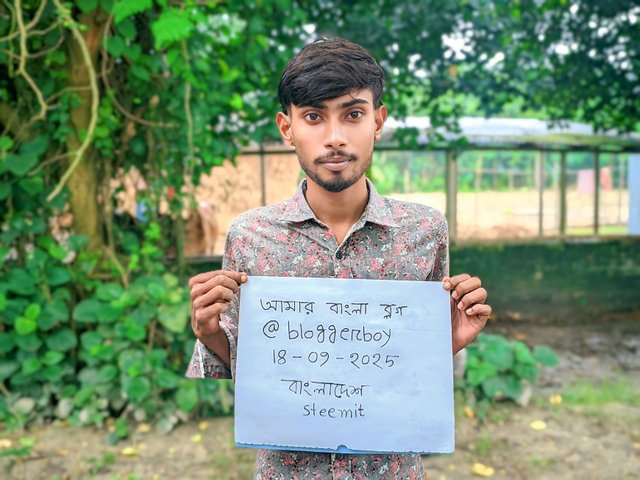 আমার বাংলা ব্লগ
@bloggerboy
18-09-2025
বাংলাদেশ
steemit